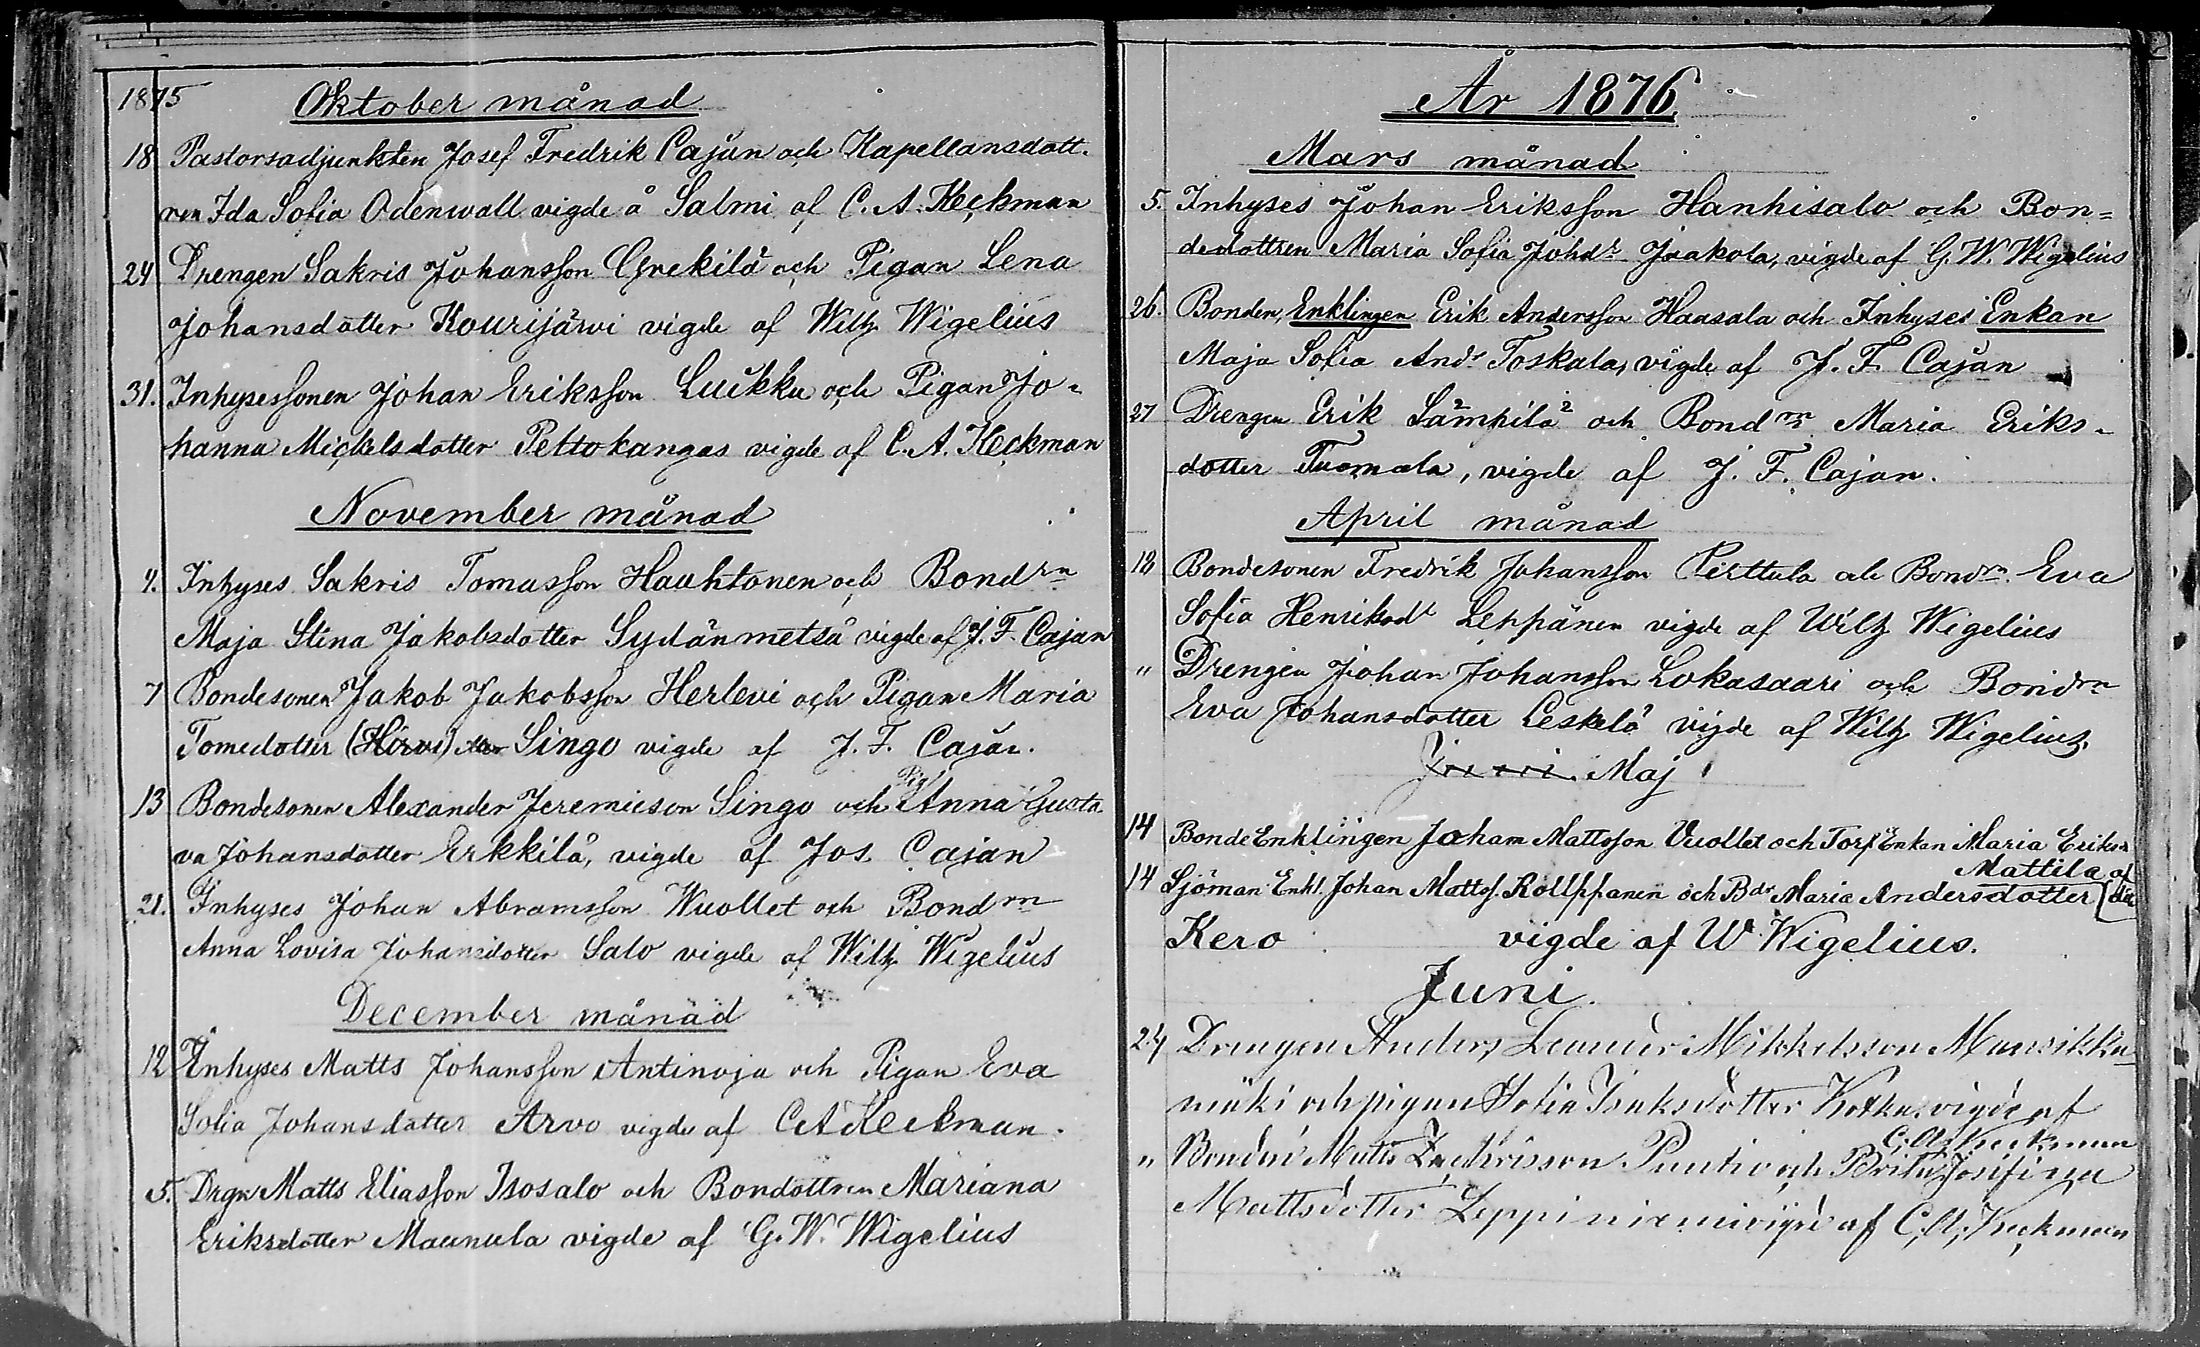 1875 Oktober månad
18 Pastorsadjunkten Josef Fredrik Cajan och Kapellansdott-
ren Ida Sofia Odenwall vigde å Salmi af C. A. Heckman
24 Drengen Sakris Johansson Grekilä och Pigan Lena
Johansdotter Kourijärvi vigde af Wilh Wigelius
31. Inhysessonen Johan Eriksson Luikku och Pigan Jo-
hanna Mickelsdotter Pettokangas vigde af C. A. Heckman
November månad
4. Inhyses Sakris Tomasson Hauhtonen och Bondrn
Maja Stina Jakobsdotter Sydänmetsä vigde af J. F. Cajan
7 Bondesonen Jakob Jakobsson Herlevi och Pigan Maria
Tomedotter (Hirvi) Singo vigde af J. F. Cajan.
13 Bondesonen Alexander Jeremieson Singo och Pig. Anna Gusta-
va Johansdotter Erkkilä, vigde af Jos Cajan
21. Inhyses Johan Abramsson Wuollet och Bondrn
Anna Lovisa Johansdotter Salo vigde af Wilh Wigelius
December månad
12 Inhyses Matts Johansson Antinoja och Pigan Eva
Sofia Johansdotter Arvo vigde af C A Heckman.
5. Drgn Matts Eliasson Isosalo och Bondottren Mariana
Eriksdotter Maunula vigde af G. W. Wigelius
År 1876.
Mars månad
5. Inhyses Johan Eriksson Hanhisalo och Bon=
dedottren Maria Sofia Johdr Jaakola, vigde af G. W. Wigelius
26. Bonden, Enklingen Erik Andersson Haasala och Inhyses Enkan
Maja Sofia Andr Toskala, vigde af J. F. Cajan
27 Drengen Erik Sämpilä och Bondrn Maria Eriks-
dotter Tuomala, vigde af J. F. Cajan.
April månad
18 Bondesonen Fredrik Johansson Perttula och Bondrn Eva
Sofia Henriksdr Leppänen vigde af Wilh Wigelius
" Drengen Johan Johansson Lokasaari och Bondrn
Eva Johansdotter Leskelä vigde af Wilh Wigelius.
Maj
14 Bonde Enklingen Joham Mattsson Vuollet och Torp Enkan Maria Eriksn
Mattila af
14 Sjöman Enkl. Johan Mattss. Rollppanen och Bdr Maria Andersdotter
Kero vigde af W Wigelius.
Juni.
24 Drengen Anders Leander Mikkelsson Mansikka-
mäki och pigan Sofia Isaksdotter Kotka, vigde af
C. A. Heckman
" Bonden Matts Fredriksson Puntio och Brita Josifina
Mattsdotter Leppiniemi vigde af C. A. Heckman